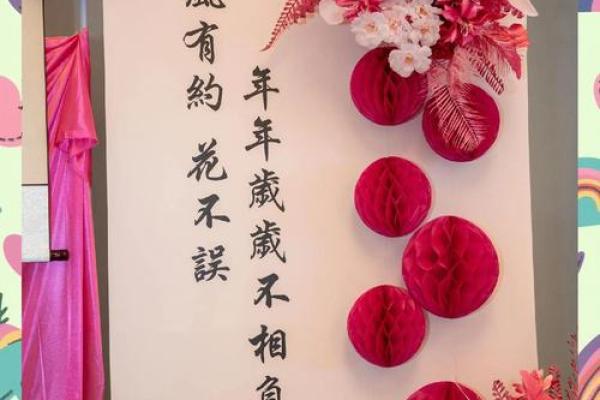 風有約 花不誤
年年歲歲不相負